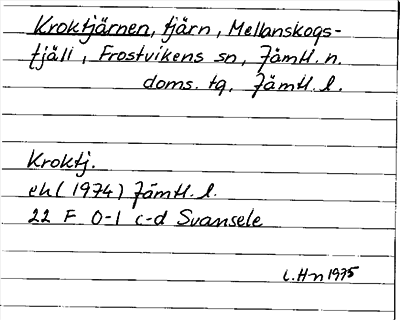 Kroktjärnen, tjärn, Mellanskogs-
fjäll, Frostvikens sn, Jämtl. n.
doms. tg, Jämtl. l.
Kroktj.
ek (1974) Jämtl. l.
22 F 0-1 c-d Svansele
L.Hn 1975